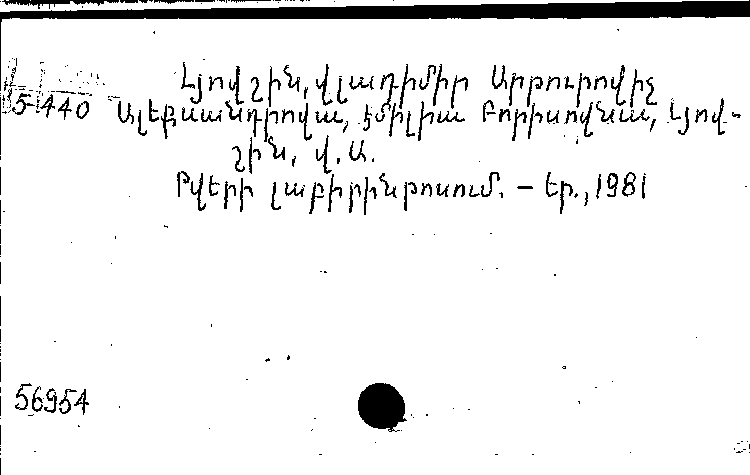 Լյովշին, Վլադիմիր Արթուրովիչ
5-440 Ալեքսանդրովա, Էմիլիա Բորիսովնա, Լյով-
շին, Վ. Ա.
Թվերի լաբիրինթոսում. – Եր., 1981
56954